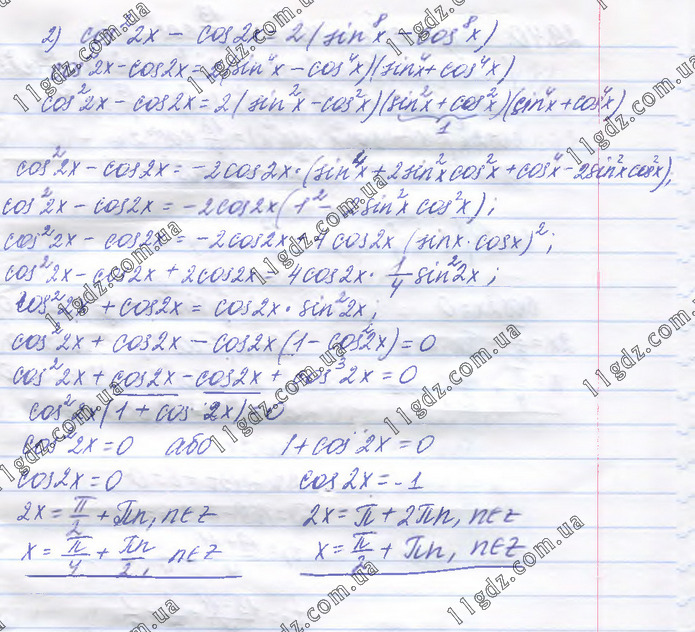 2) cos²2x − cos2x = 2(sin⁸x − cos⁸x)
cos²2x − cos2x = 2(sin⁴x − cos⁴x)(sin⁴x + cos⁴x)
cos²2x − cos2x = 2(sin²x − cos²x)(sin²x + cos²x)(sin⁴x + cos⁴x)
1
cos²2x − cos2x = −2cos2x·(sin⁴x + 2sin²x cos²x + cos⁴x − 2sin²x cos²x);
cos²2x − cos2x = −2cos2x(1² − 2sin²x cos²x);
cos²2x − cos2x = −2cos2x + 4cos2x (sinx·cosx)²;
cos²2x − cos2x + 2cos2x = 4cos2x · 1/4 sin²2x;
cos²2x + cos2x = cos2x·sin²2x;
cos²2x + cos2x − cos2x(1 − cos²2x) = 0
cos²2x + cos2x − cos2x + cos³2x = 0
cos²2x(1 + cos 2x) = 0
cos²2x = 0 або 1 + cos 2x = 0
cos2x = 0 cos2x = −1
2x = π/2 + πn, n∈Z 2x = π + 2πn, n∈Z
x = π/4 + πn/2, n∈Z x = π/2 + πn, n∈Z
11gdz.com.ua
11gdz.com.ua
11gdz.com.ua
11gdz.com.ua
11gdz.com.ua
11gdz.com.ua
11gdz.com.ua
11gdz.com.ua